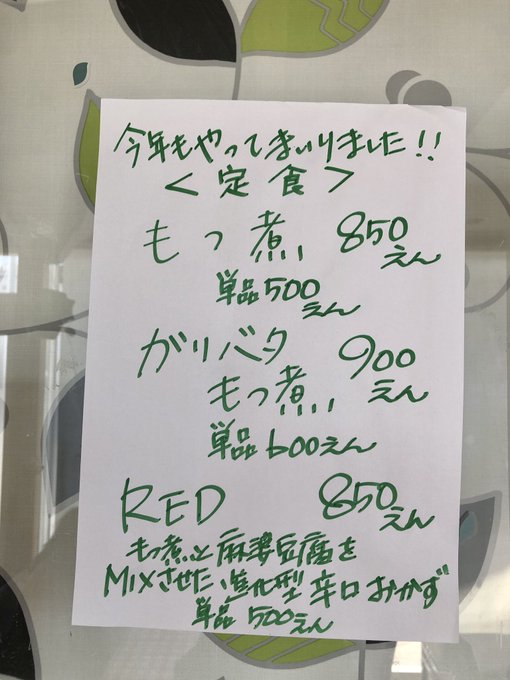 今年もやってまいりました!!
＜定食＞
もつ煮 850えん
単品500えん
ガリバタ 900えん
もつ煮
単品600えん
RED 850えん
もつ煮と麻婆豆腐を
MIXさせた、進化型辛口おかず
単品 500えん